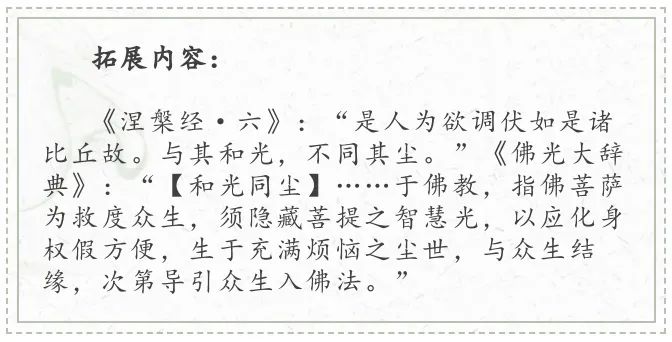 拓展内容：
《涅槃经·六》：“是人为欲调伏如是诸
比丘故。与其和光，不同其尘。”《佛光大辞
典》：“【和光同尘】……于佛教，指佛菩萨
为救度众生，须隐藏菩提之智慧光，以应化身
权假方便，生于充满烦恼之尘世，与众生结
缘，次第导引众生入佛法。”